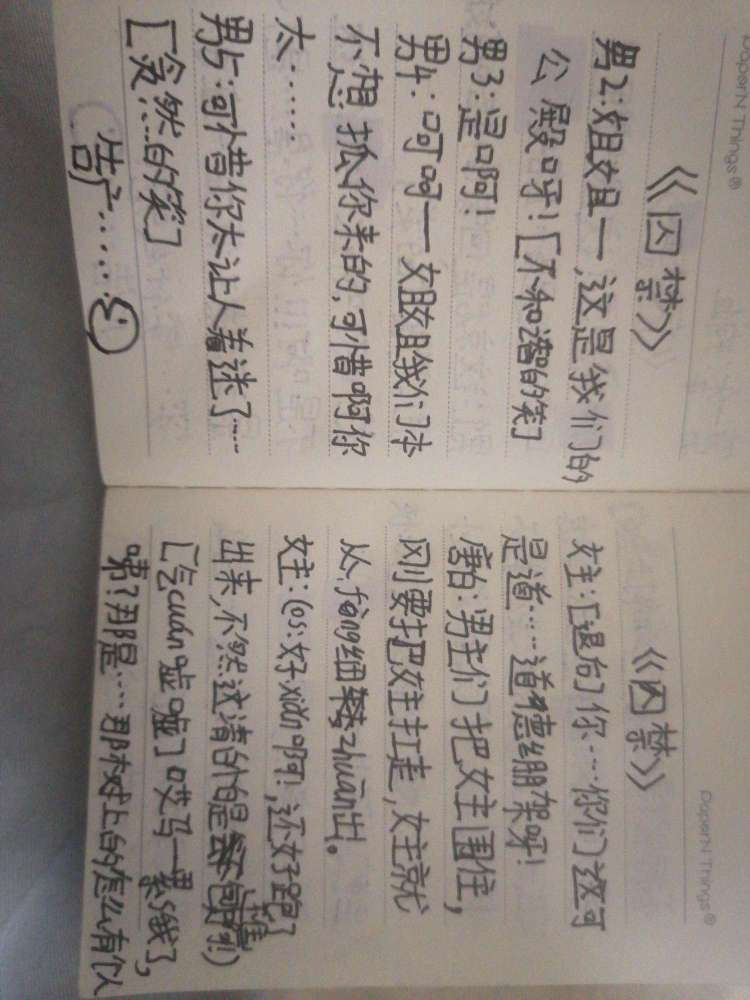 PaperN Things®
《囚禁》
男2:姐姐一,这是我们的
公殿呀![不和谐的笑]
男3:是啊!
男4:呵呵一姐姐我们本
不想抓你来的,可惜啊你
太……
男5:可惜你太让人着迷了……
[贪然的笑]
告广……
PaperN Things®
《囚禁》
女主:[退后]你…你们这可
是道……道德绑架呀!
唐怕:男主们把女主围住,
刚要把女主扛走,女主就
从fèng细zhuān出。
女主:(os:好xiǎn啊!还好跑了
出来,不然这清白是
[气cuán嘘嘘]哎马一累s我了,
咦?那是……那树上的怎么有个人